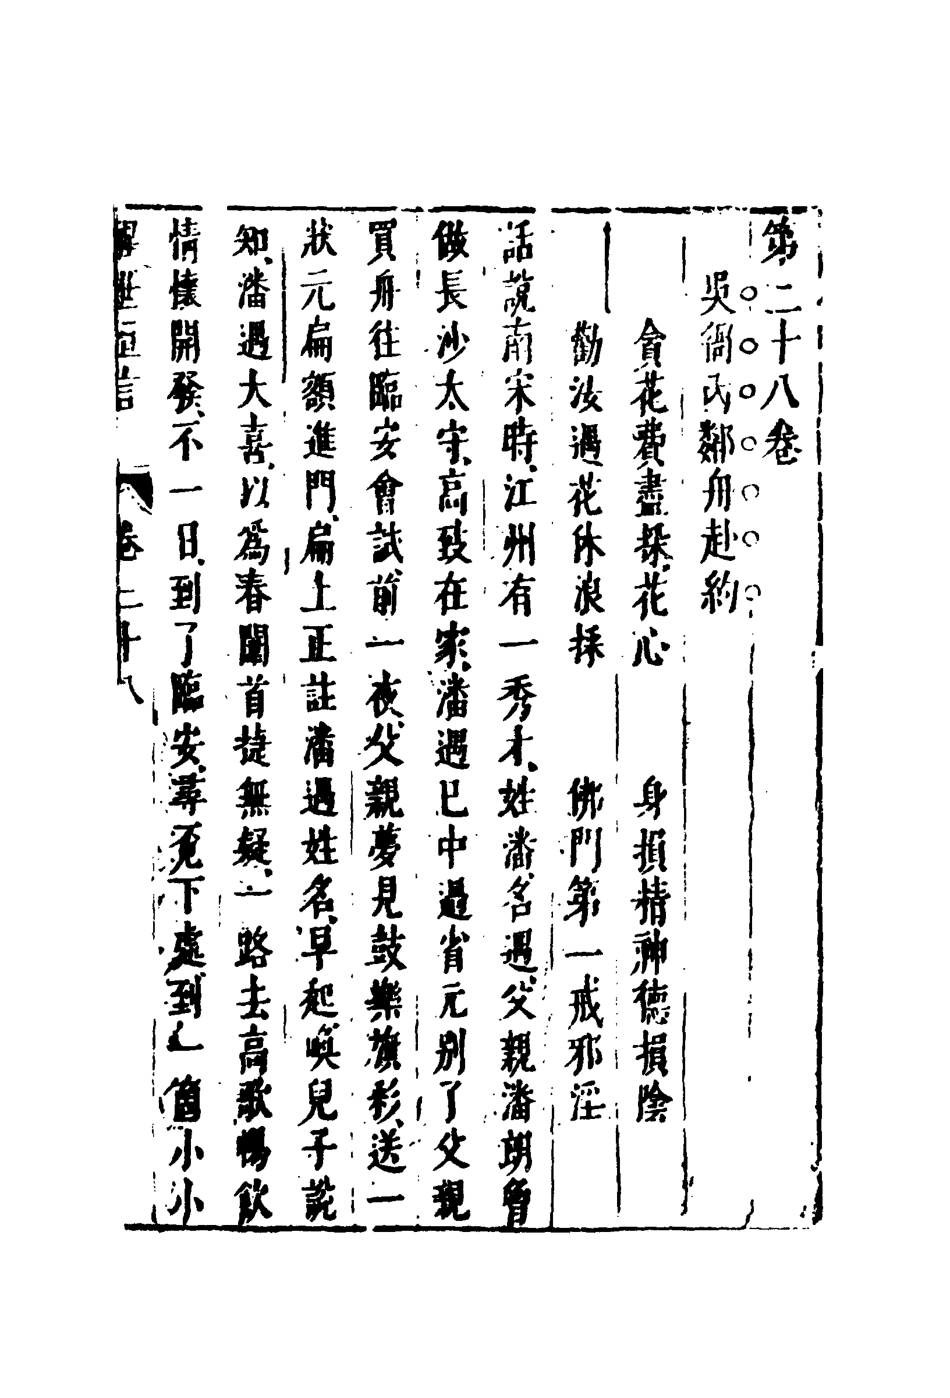 第二十八卷
吳衙內鄰舟赴約
貪花費盡採花心　身損精神德損陰
勸汝遇花休浪採　佛門第一戒邪淫
話說南宋時、江州有一秀才、姓潘、名遇、父親潘朗曾
做長沙太守、高致在家、潘遇已中過省元別了父親
買舟往臨安會試前一夜、父親夢見鼓樂旗彩、送一
狀元扁額進門、扁上正註潘遇姓名、早起喚兒子說
知、潘遇大喜、以爲春闈首捷無疑、一路去高歌暢飲
情懷開發、不一日、到了臨安、尋覓下處、到一箇小小
醒世恒言　卷二十八